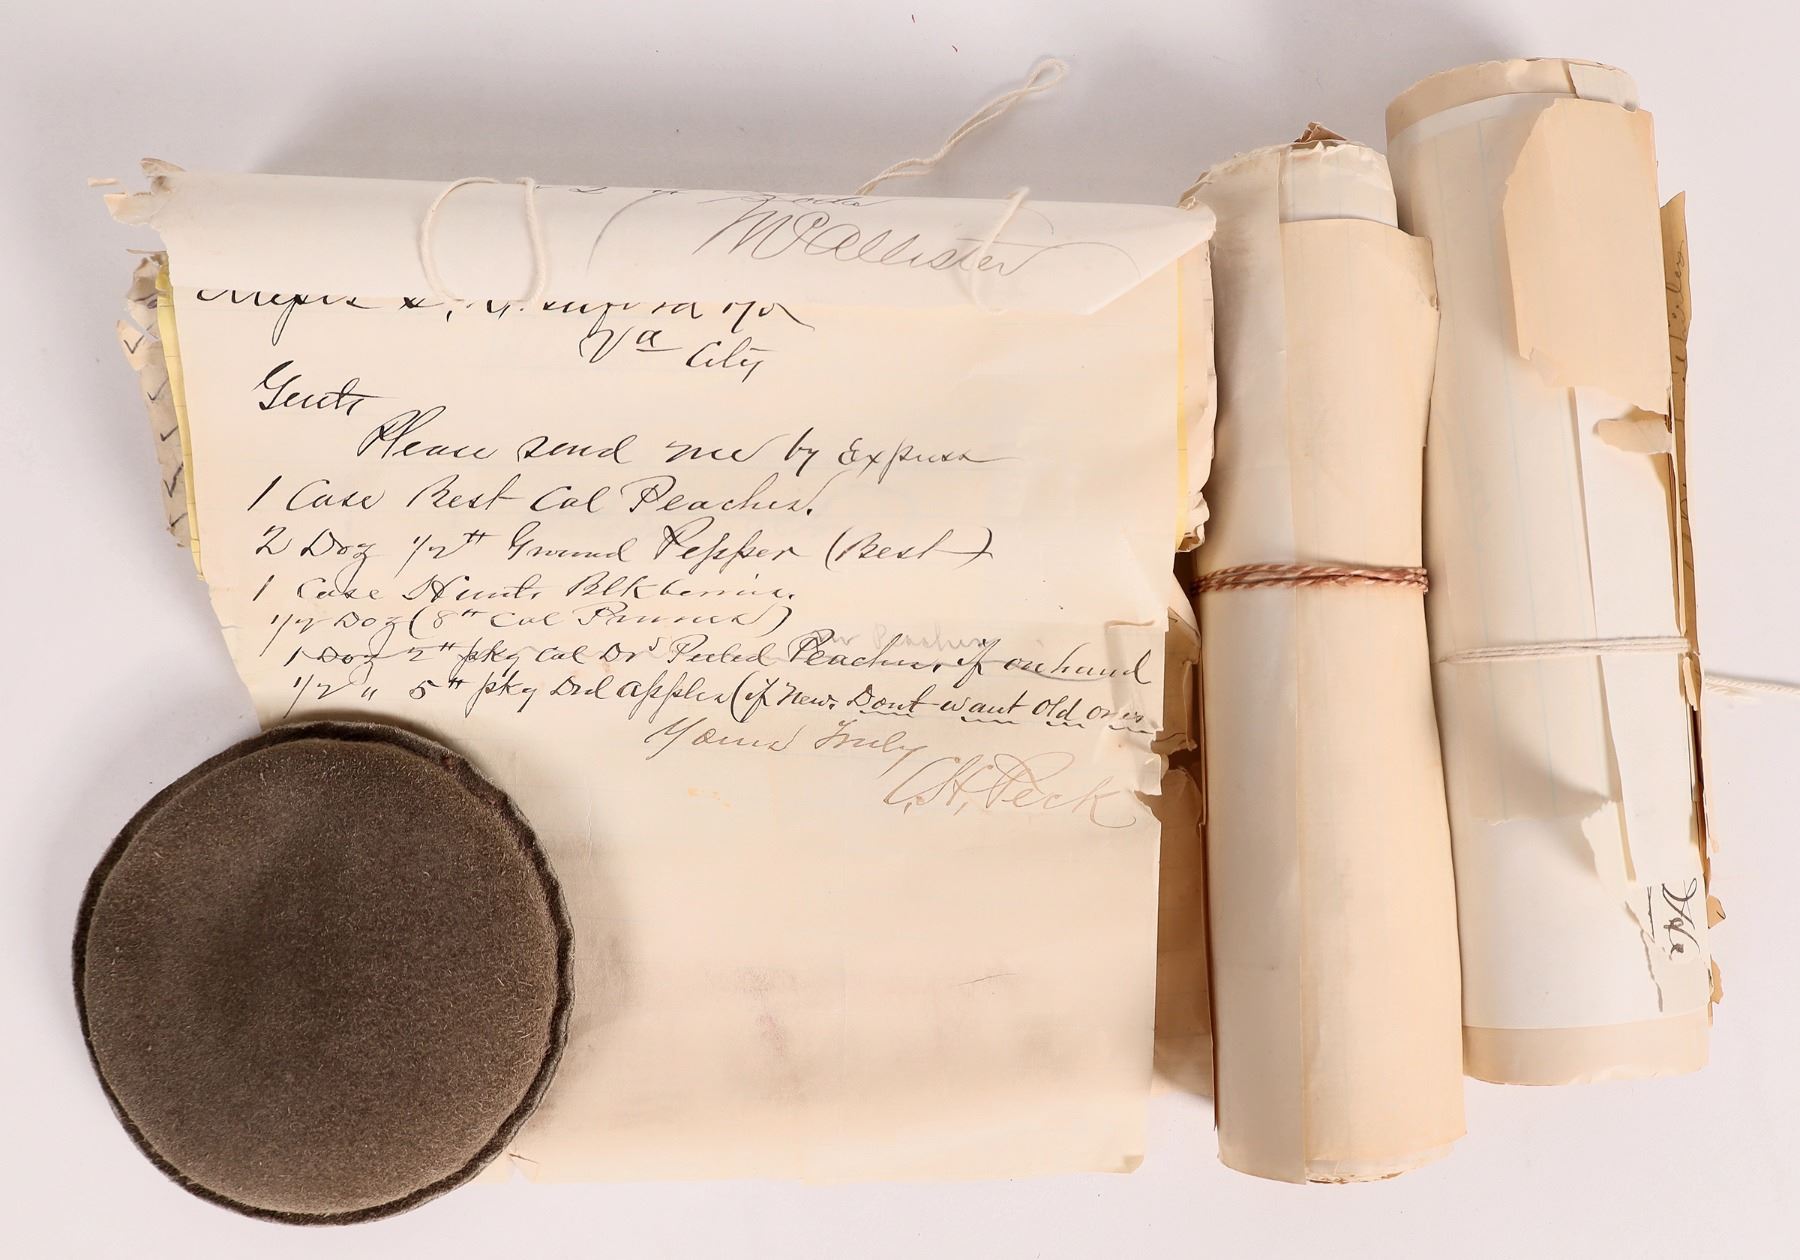 McAllister
Va City
Gents
Please send me by Express
1 Case Best Cal Peaches.
2 Doz 1/2 tt Ground Pepper (Best)
1 Case Hunts Blkberries.
1/2 Doz (8tt Cal Prunes)
Peaches
1 Doz 2tt pkg Cal Drd Peeled Peaches, if on hand
1/2 " 5tt pkg Drd Apples (if New. Dont want Old ones
Yours Truly
C.H. Peck